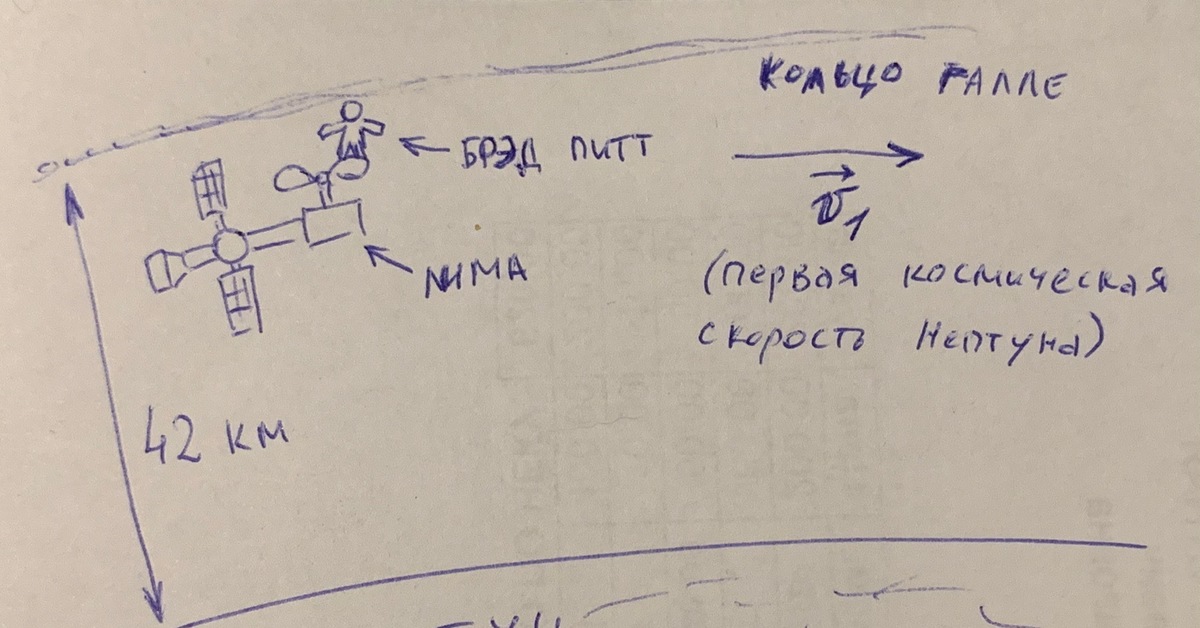 КОЛЬЦО ГАЛЛЕ
БРЭД ПИТТ
v₁
ЛИМА
(первая космическая
скорость Нептуна)
42 км